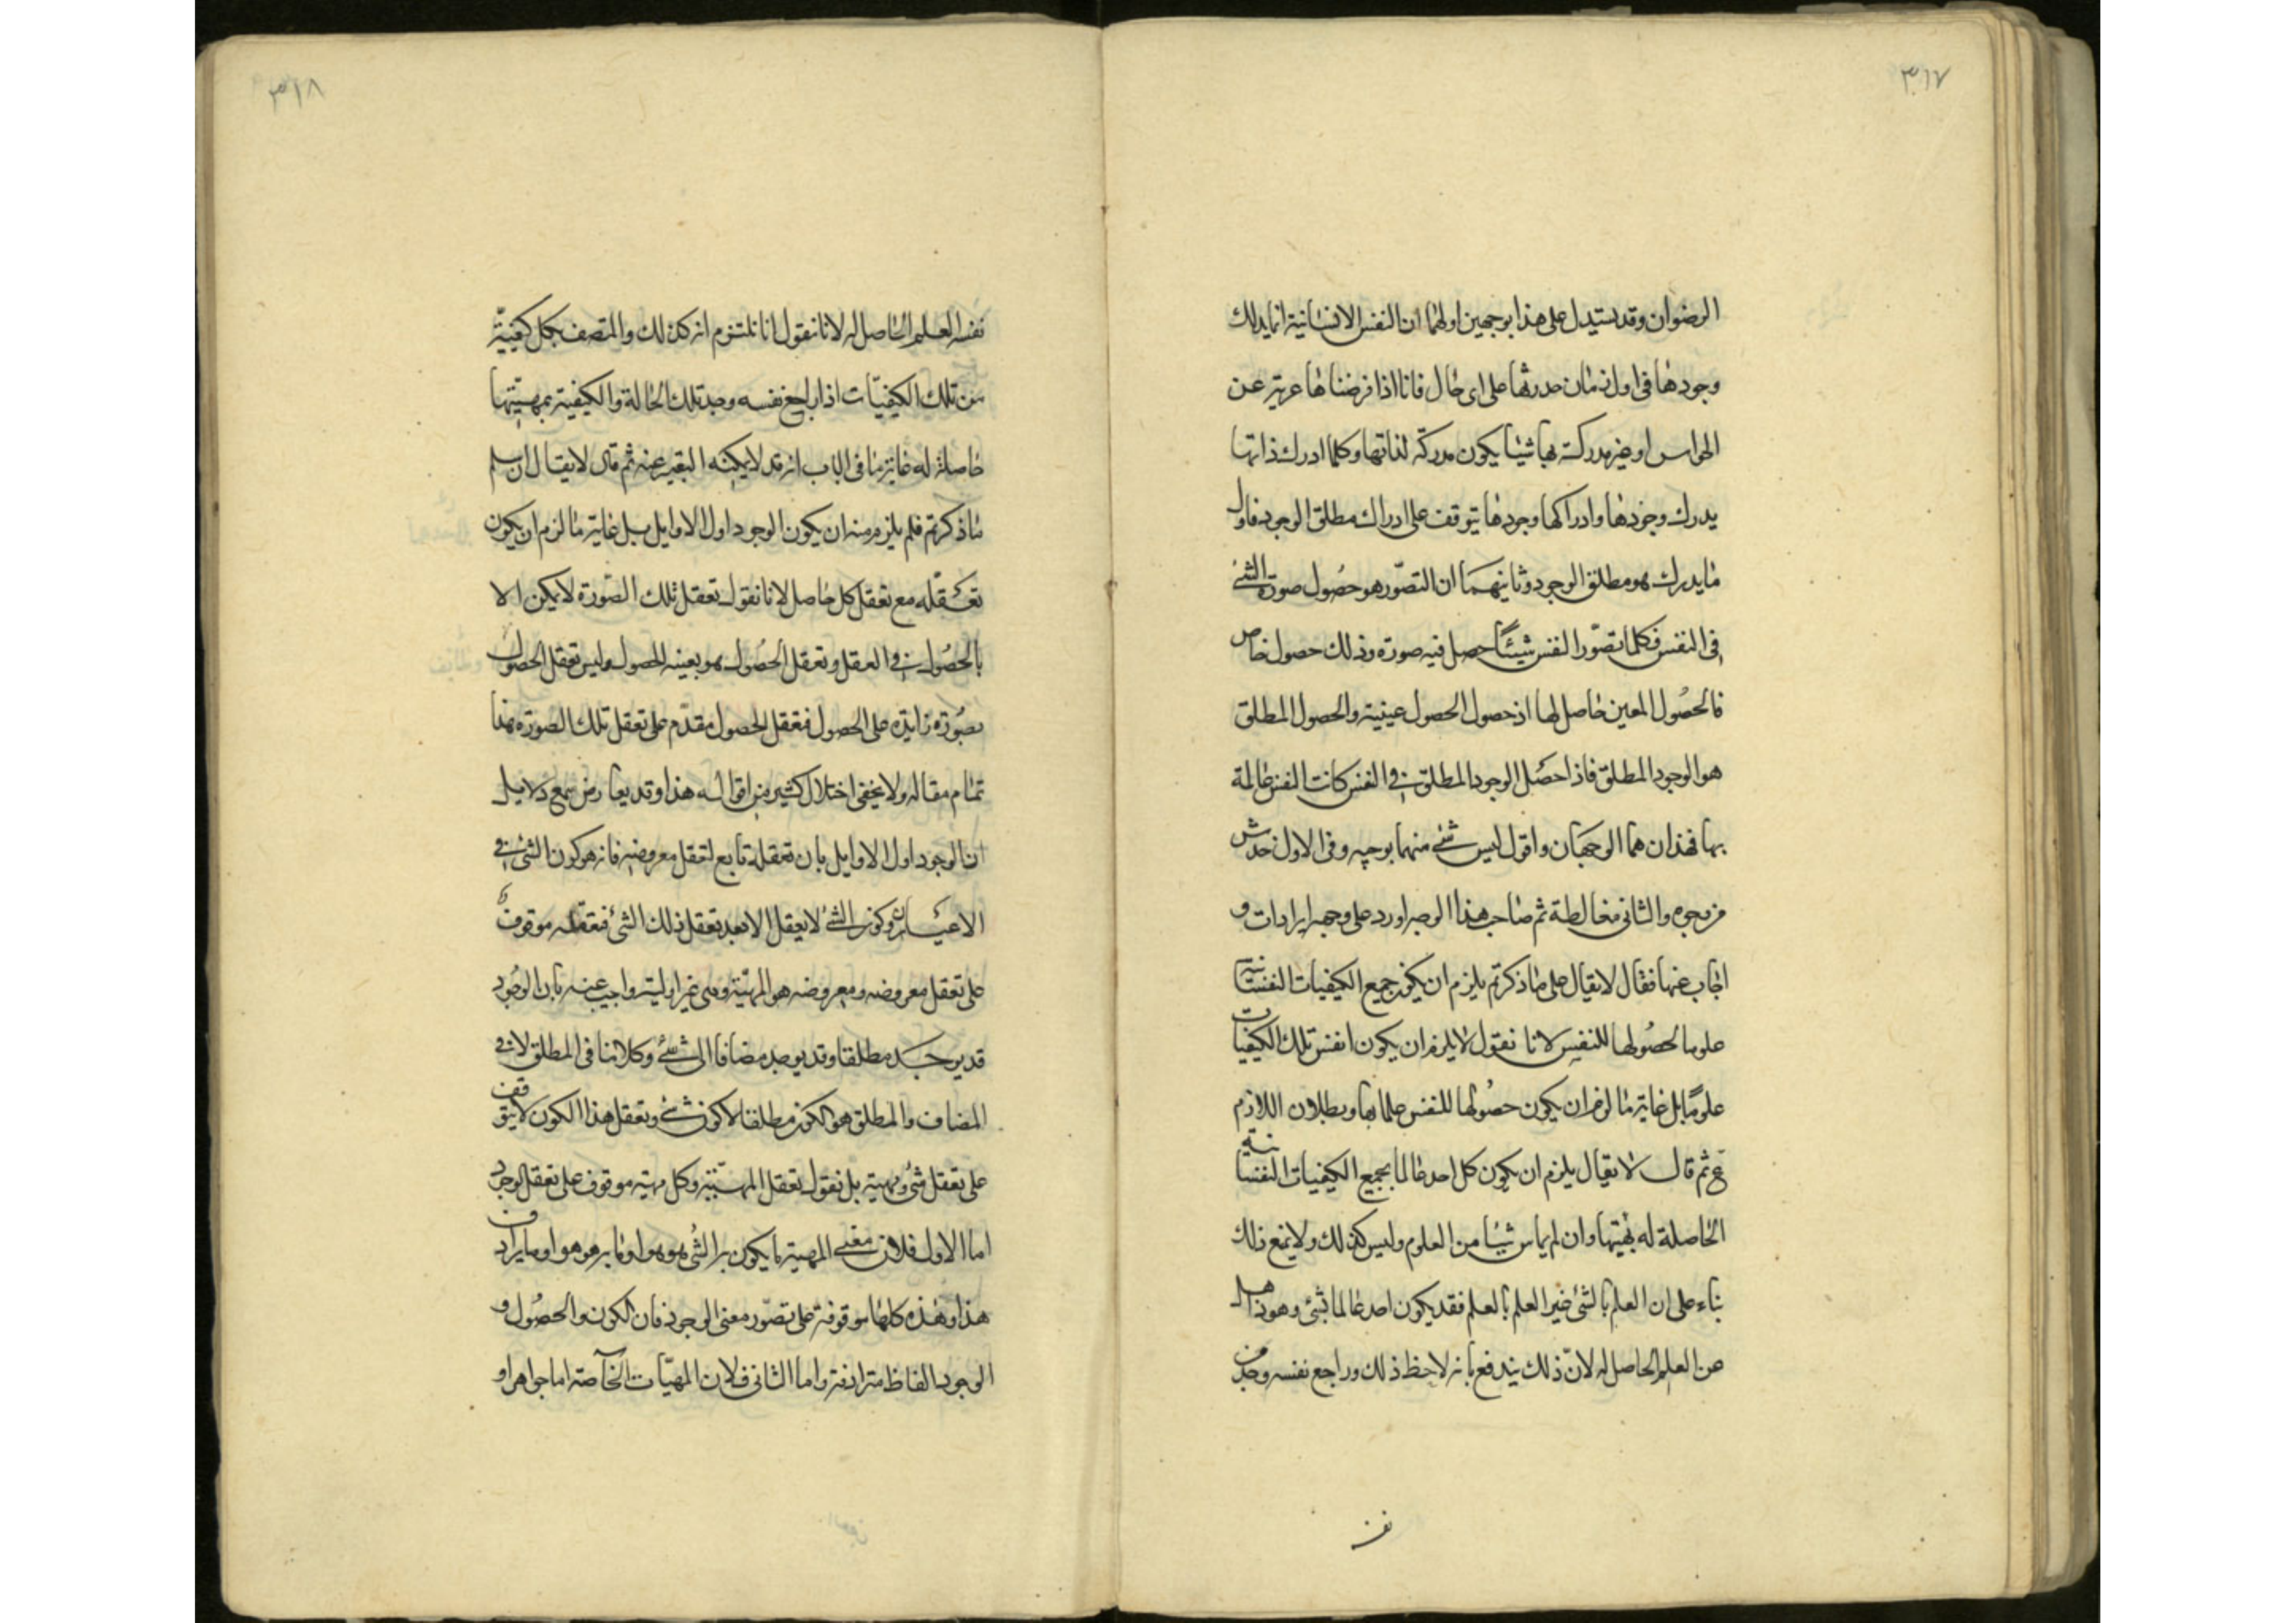 ٣١٧
الرضوان وقد يستدل على هذا بوجهين اولهما ان النفس الانسانية انما يدرك
وجودها فى اول زمان حدوثها على اى حال فانا اذا فرضناها عرية عن
الحواس او غير مدركة بها شيئا يكون مدركة لذاتها وكلما ادرك ذاتها
يدرك وجودها وادراكها وجودها يتوقف على ادراك مطلق الوجود فاول
ما يدرك هو مطلق الوجود وثانيهما ان التصوّر هو حصُول صورة الشئ
فى النفس فكلما تصوّر النفس شيئًا حصل فيه صورة وذلك حصول خاص
فالحصُول المعين حاصل لها اذ حصول الحصول عينية والحصول المطلق
هو الوجود المطلق فاذا حصَل الوجود المطلق فى النفس كانت النفس عالمة
بها فهذان هما الوجهان واقول ليس شئ منهما بوجيه وفى الاول خدش
من وجوه والثانى مغالطة ثم صاحب هذا الوجه اورد على وجهه ايرادات و
اجاب عنها فقال لا يقال على ما ذكرتم يلزم ان يكون جميع الكيفيات النفسانية
علوما لحصُولها للنفس لانا نقول لا يلزم ان يكون انفس تلك الكيفيات
علومًا بل غاية ما لزم ان يكون حصُولها للنفس علما بها وبطلان اللازم
مم ثم قال لا يقال يلزم ان يكون كل احد عالما بجميع الكيفيات النفسانية
الحاصلة له بمهيتها وان لم يمارس شيئا من العلوم وليس كذلك ولا يمنع ذلك
بناء على ان العلم بالشئ غير العلم بالعلم فقد يكون احد عالما بشئ وهو ذاهل
عن العلم الحاصل له لانّ ذلك يندفع بانه لاحظ ذلك وراجع نفسه وجد من
نفسه
٣١٨
نفسه العلم الحاصل له لانا نقول انا نلتزم انه كذلك والمتصف بكل كيفيّة
من تلك الكيفيّات اذا راجع نفسه وجد تلك الحالة والكيفية بمهيّتها
حاصلة له غاية ما فى الباب انه قد لا يمكنه التعبير عنه ثم قال لا يقال ان سلم
ما ذكرتم فلم يلزم منه ان يكون الوجود اول الاوايل بل غاية ما لزم ان يكون
تعقّله مع تعقل كل حاصل لانا نقول تعقل تلك الصّورة لا يمكن الا
بالحصُول فى العقل وتعقل الحصُول هو بعينه الحصول وليس تعقل الحصول
بصُورة زايدة على الحصول فتعقل الحصول مقدّم على تعقل تلك الصورة هذا
تمام مقاله ولا يخفى اختلال كثير من اقواله هذا وقد يعارض جميع دلايل
ان الوجود اول الاوايل بان تعقله تابع لتعقل معروضه فانه هو كون الشئ فى
الاعيان وكون الشئ لا يعقل الا بعد تعقل ذلك الشئ فتعقله موقوف
على تعقل معروضه ومعروضه هو المهيّة وهى غير اولية واجيب عنه بان الوجُود
قد يوجد مطلقا وقد يوجد مضافا الى شئ وكلامنا فى المطلق لا فى
المضاف والمطلق هو الكون مطلقا لا كون شئ وتعقل هذا الكون لا يتوقف
على تعقل شئ ومهية بل نقول تعقل المهيّة وكل مهية موقوف على تعقل الوجود
اما الاول فلان معنى المهية ما يكون به الشئ هو هو او ما به هو هو او ما يرادف
هذا وهذه كلها موقوفة على تصّور معنى الوجود فان الكون والحصُول و
الوجود الفاظ مترادفة واما الثانى فلان المهيّات الخاصة اما جواهر او